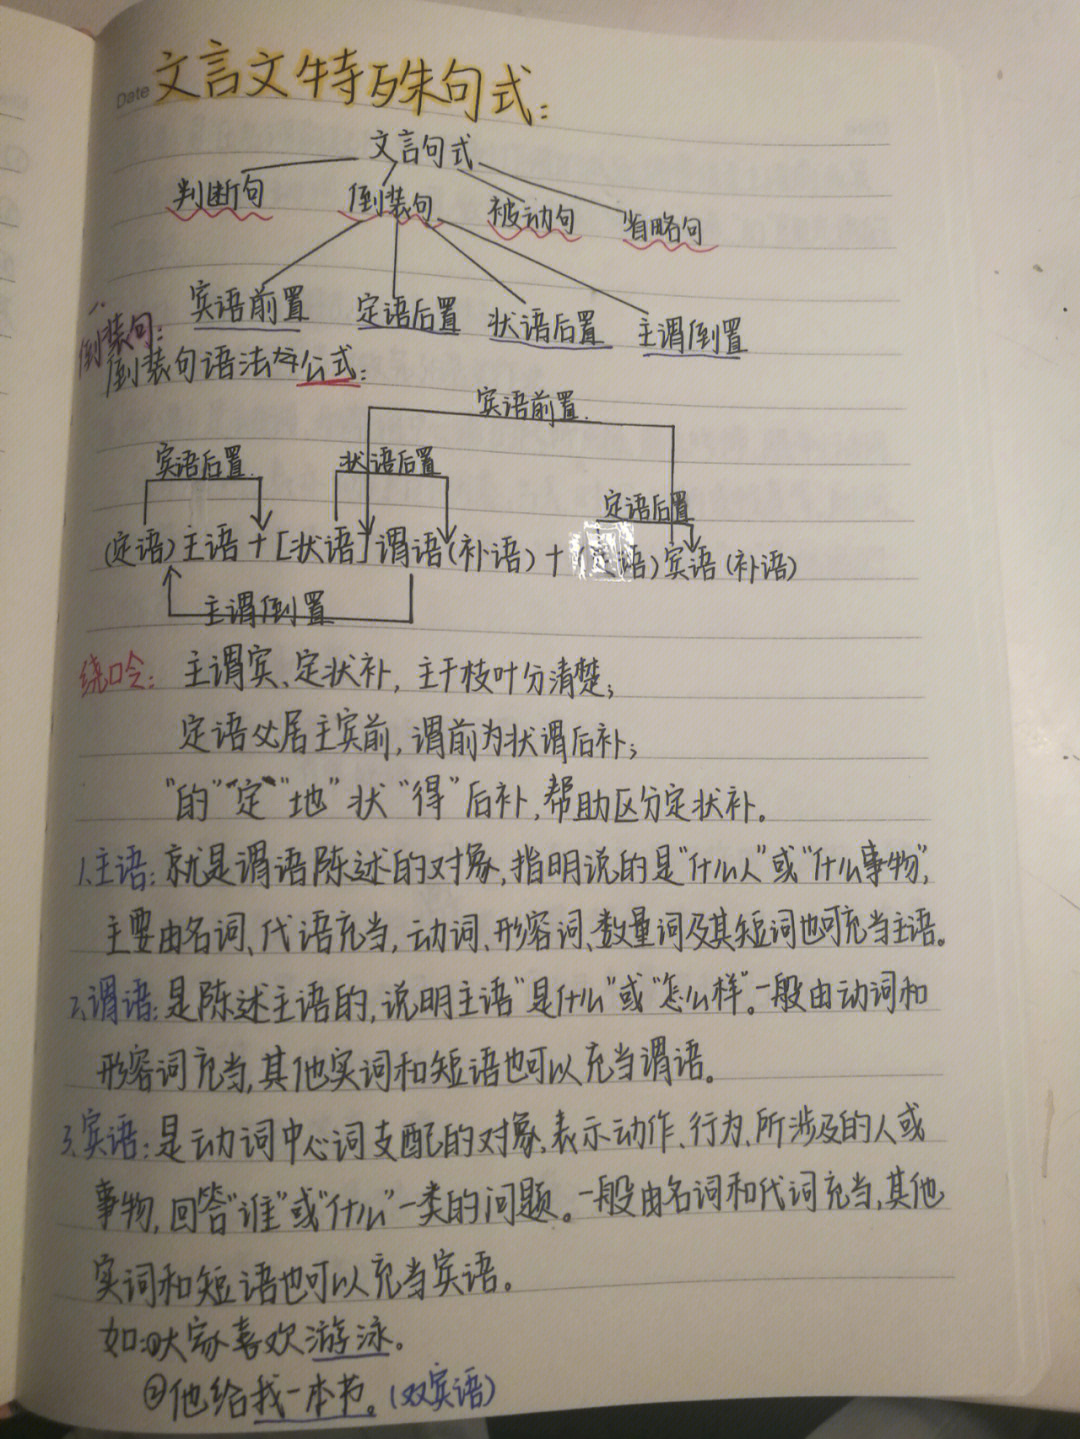 Date 文言文特殊句式:
文言句式
判断句 倒装句 被动句 省略句
宾语前置 定语后置 状语后置 主谓倒置
倒装句:
倒装句语法公式:
宾语前置.
宾语后置. 状语后置
定语后置
(定语)主语+[状语]谓语(补语)+(定语)宾语(补语)
主谓倒置
绕口令: 主谓宾、定状补,主干枝叶分清楚;
定语必居主宾前,谓前为状谓后补;
"的"定"地"状"得"后补,帮助区分定状补。
1.主语:就是谓语陈述的对象,指明说的是"什么人"或"什么事物",
主要由名词、代语充当,动词、形容词、数量词及其短词也可充当主语。
2.谓语:是陈述主语的,说明主语"是什么"或"怎么样"。一般由动词和
形容词充当,其他实词和短语也可以充当谓语。
3.宾语:是动词中心词支配的对象,表示动作、行为、所涉及的人或
事物,回答"谁"或"什么"一类的问题。一般由名词和代词充当,其他
实词和短语也可以充当宾语。
如:①大家喜欢游泳。
②他给我一本书。(双宾语)